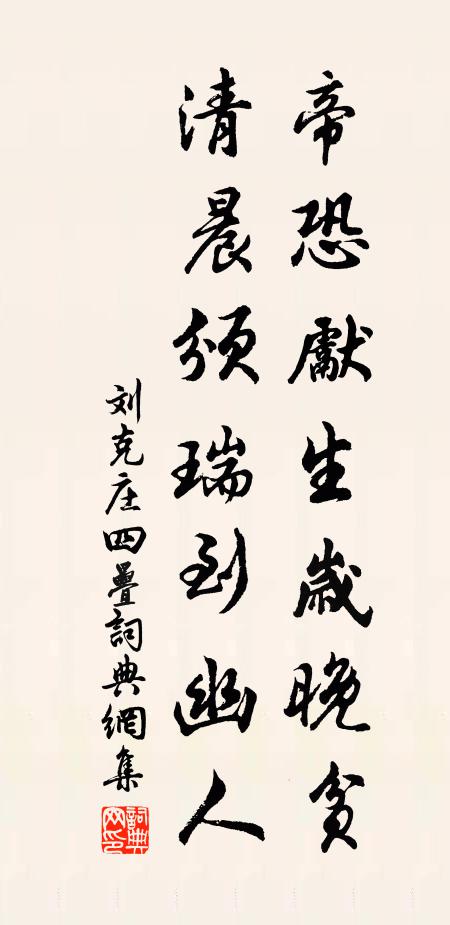 帝恐獻生歲晚貧
清晨頒瑞到幽人
刘克庄四疊詞典網集
詞典网印